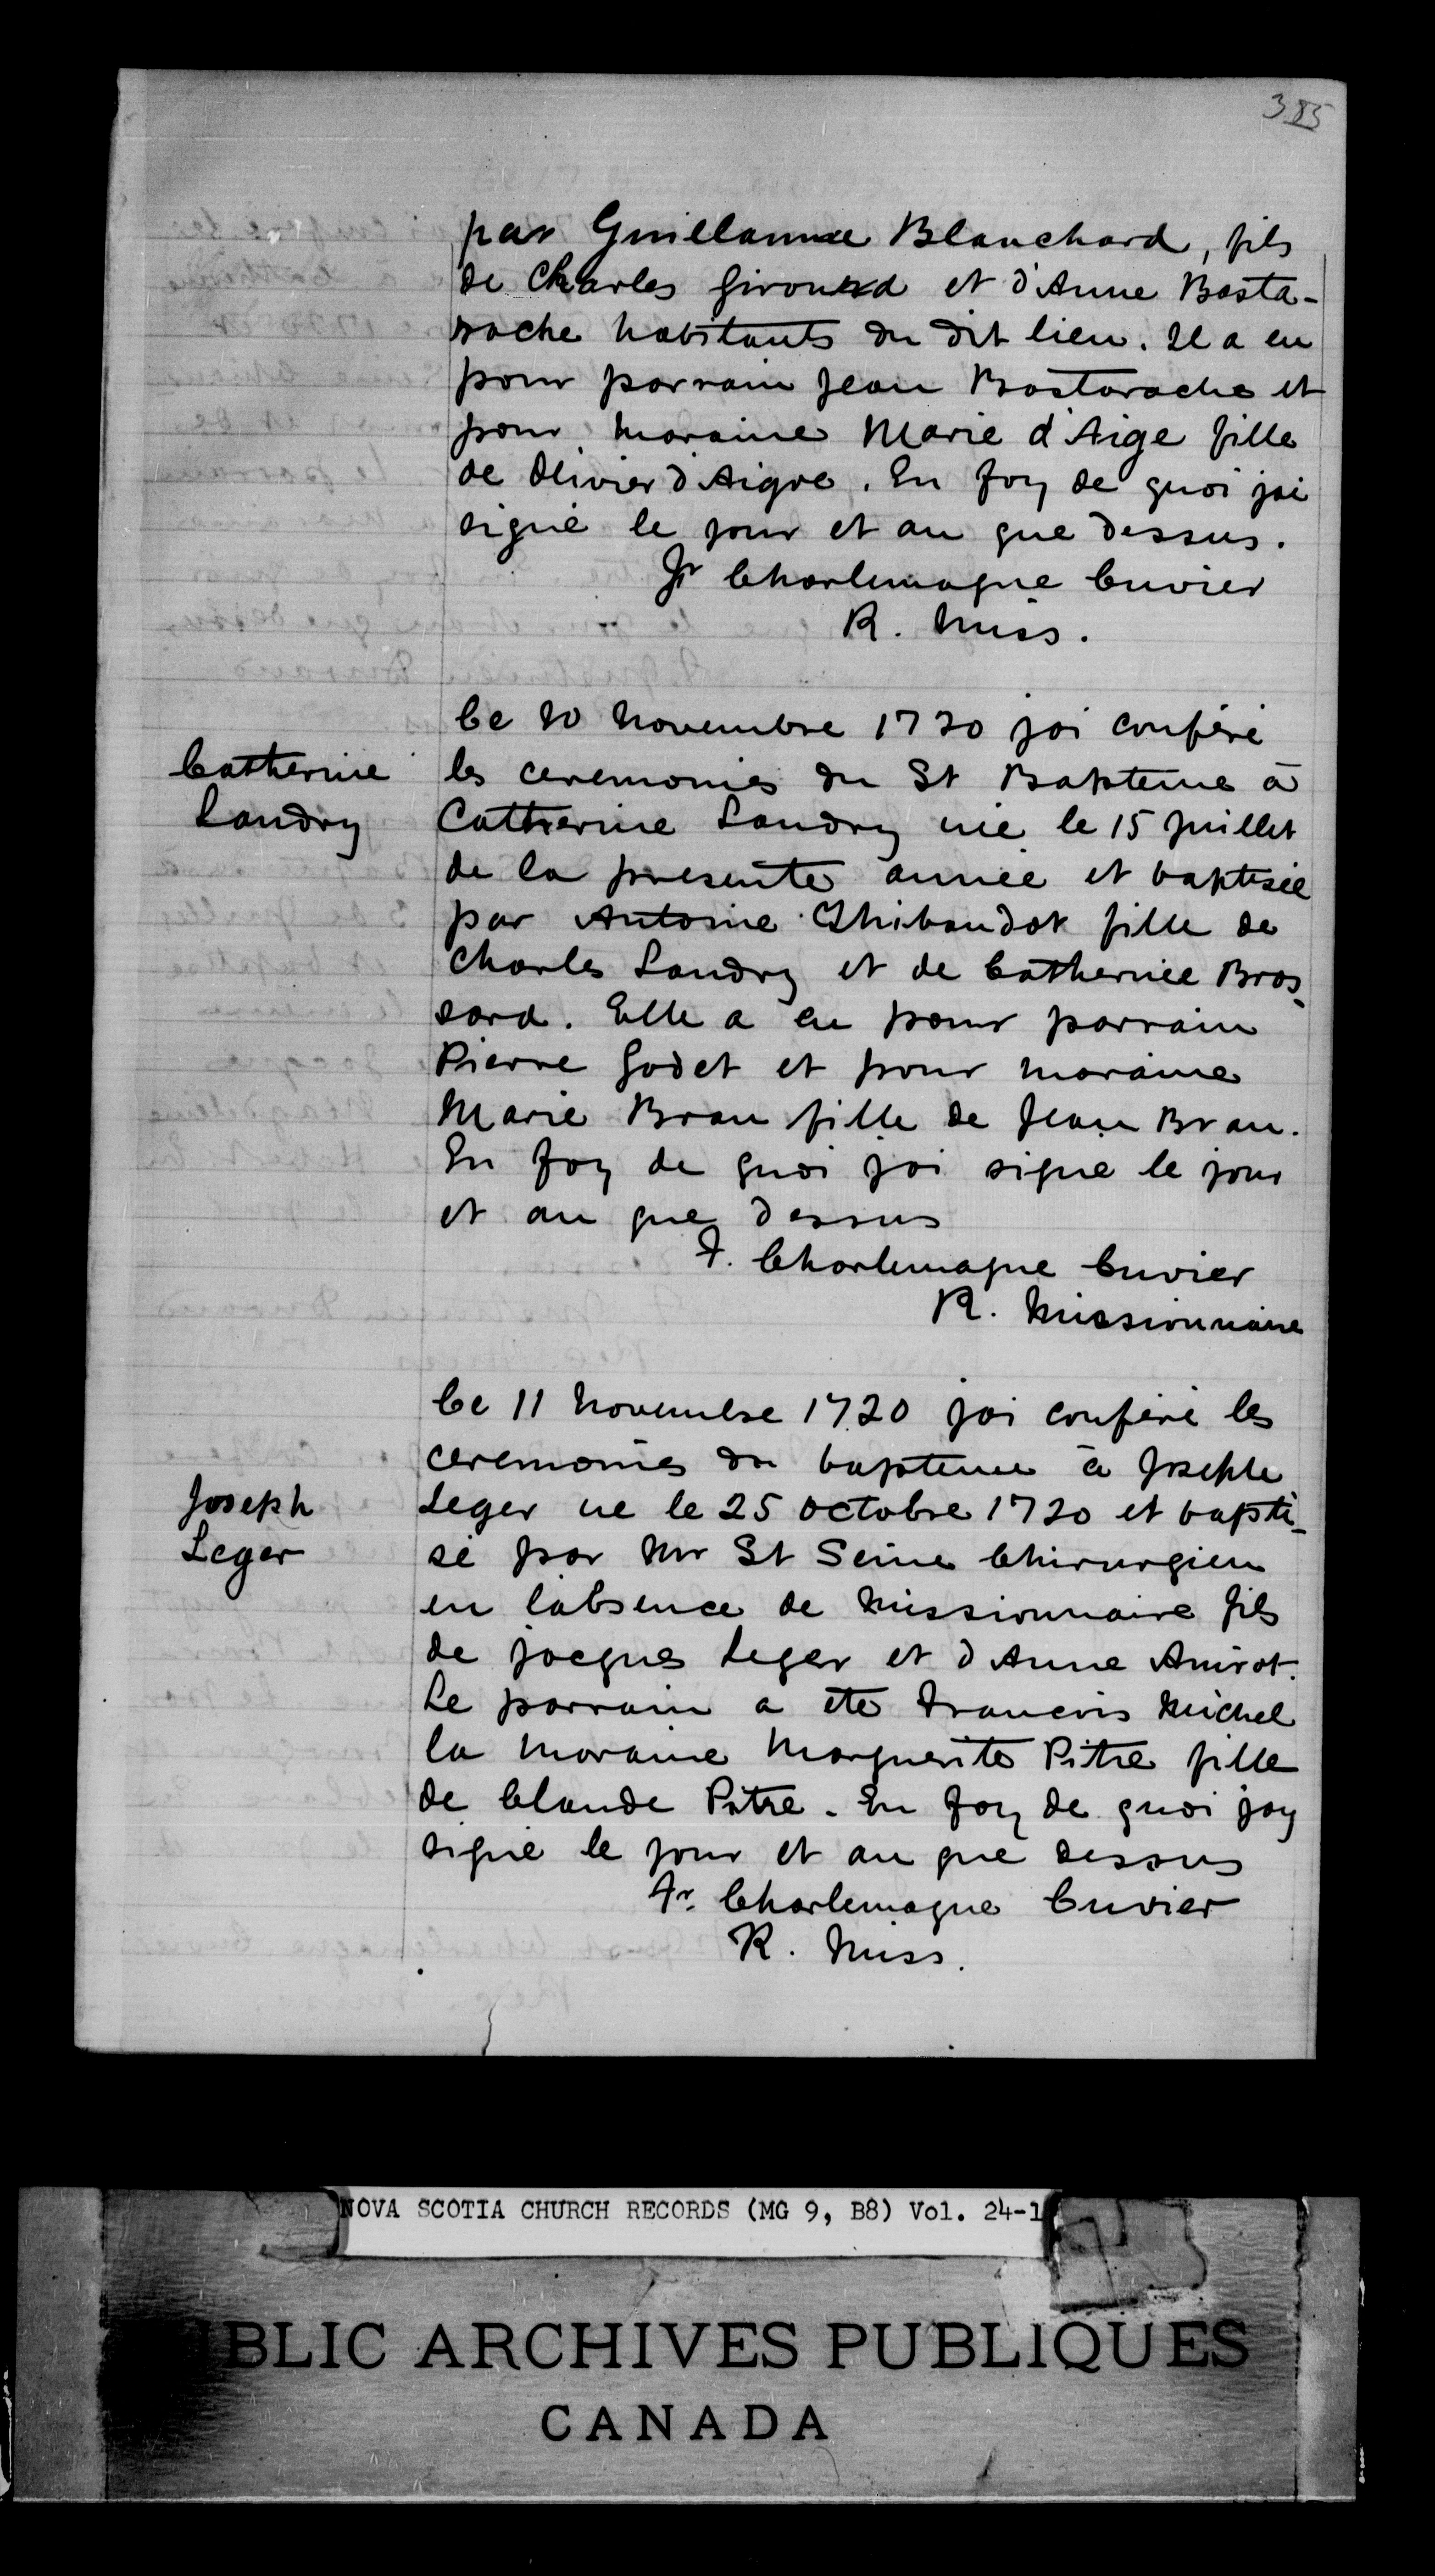 385
par Guillaume Blanchard, fils
de Charles Girouard et d'Anne Basta-
rache habitants du dit lieu. Il a eu
pour parrain Jean Bastarache et
pour maraine Marie d'Aige fille
de Olivier d'Aigre. En foy de quoi jai
signé le jour et an que dessus.
Fr Charlemagne Cuvier
R. Miss.
Catherine
Landry
Ce 10 Novembre 1720 jai conféré
les ceremonies du St Bapteme à
Catherine Landry née le 15 juillet
de la presente année et baptisée
par Antoine Thibaudot fille de
Charles Landry et de Catherine Bros-
sard. Elle a eu pour parrain
Pierre Godet et pour maraine
Marie Brau fille de Jean Brau.
En foy de quoi jai signé le jour
et an que dessus
F. Charlemagne Cuvier
R. Missionnaire
Joseph
Leger
Ce 11 Novembre 1720 jai conféré les
ceremonies du bapteme à Joseph
Leger né le 25 Octobre 1720 et bapti-
sé par Mr St Seine Chirurgien
en l'absence de Missionnaire fils
de Jacques Leger et d'Anne Amirot.
Le parrain a ete Francois Michel
la maraine Marguerite Pitre fille
de Claude Pitre. En foy de quoi jay
signé le jour et an que dessus
Fr. Charlemagne Cuvier
R. Miss.
NOVA SCOTIA CHURCH RECORDS (MG 9, B8) Vol. 24-1
BLIC ARCHIVES PUBLIQUES
CANADA